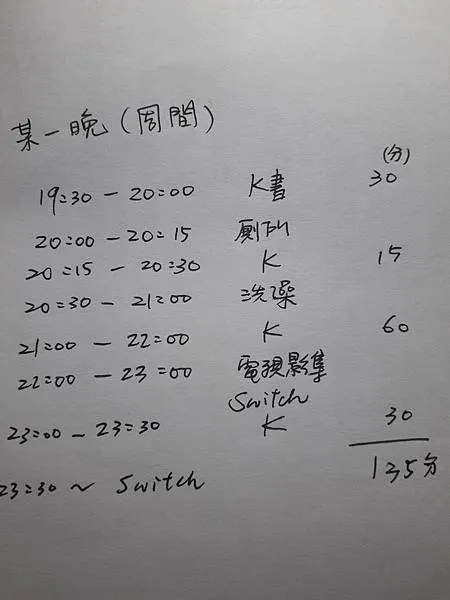 某一晚(周間)
(分)
19:30 - 20:00 K書 30
20:00 - 20:15 厠所
20:15 - 20:30 K 15
20:30 - 21:00 洗澡
21:00 - 22:00 K 60
22:00 - 23:00 電視影集
Switch
23:00 - 23:30 K 30
135分
23:30 ~ Switch